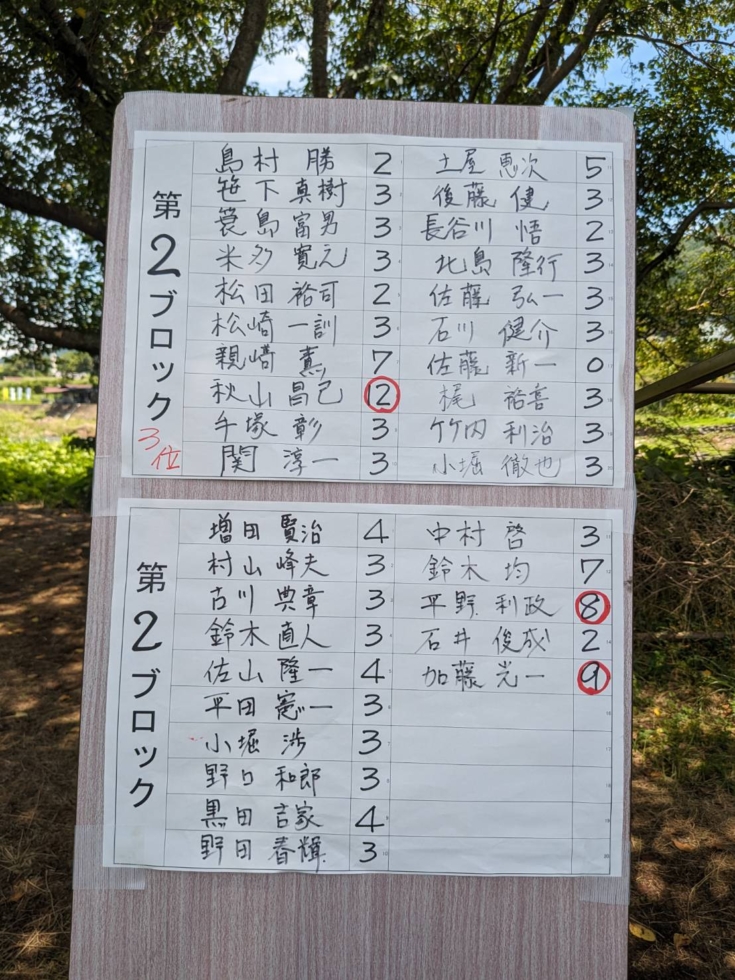 第2ブロック
3位
島村 勝 2
笹下 真樹 3
簑島 富男 3
米多 寛元 3
松田 裕司 2
松崎 一訓 3
親﨑 薫 7
秋山 昌己 12
手塚 彰 3
関 淳一 3
土屋 恵次 5
後藤 健 3
長谷川 悟 2
北島 隆行 3
佐藤 弘一 3
石川 健介 3
佐藤 新一 0
梶 裕喜 3
竹内 利治 3
小堀 徹也 3
第2ブロック
増田 賢治 4
村山 峰夫 3
古川 典章 3
鈴木 直人 3
佐山 隆一 4
平田 憲一 3
小堀 渉 3
野口 和郎 3
黒田 吉家 4
野田 春輝 3
中村 啓 3
鈴木 均 7
平野 利政 8
石井 俊成 2
加藤 光一 9